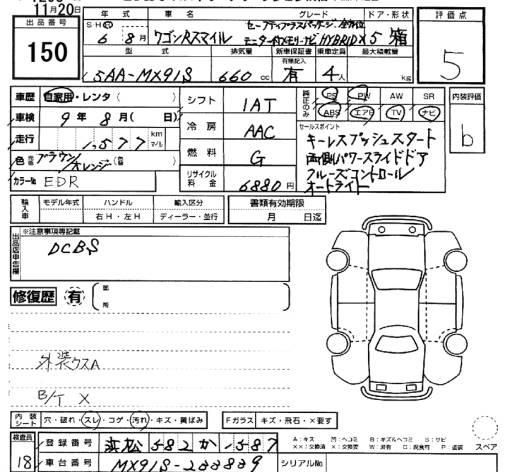 11月20日
出品番号
150
年 式 車 名 グレード ドア・形状
S・H・R 6年 8月 ワゴンRスマイル HYBRID X 5 箱
型 式 排気量 新車保証書 乗車定員 最大積載量
5AA-MX91S 660 cc 有 4人 kg
評価点
5
車歴 自家用・レンタ( )
車検 9年 8月( 日)
走行 1,577 km
色 ブラウン/オレンジ
カラーNo EDR
シフト IAT
冷房 AAC
燃料 G
リサイクル料金 6880円
純正のみ PS PW AW SR
ABS エアB TV ナビ
内装評価
b
セールスポイント
キーレスプッシュスタート
両側パワースライドドア
クルーズコントロール
オートライト
輸入車 モデル年式 ハンドル 輸入区分
右H・左H ディーラー・並行
書類有効期限
月 日迄
※注意事項等記載
DCBS
修復歴 有
外装クスA
B/T X
内装シート 穴・破れ・スレ・コゲ・汚れ・キズ・黄ばみ
Fガラス キズ・飛石・×要す
スペア
検査員
18
登録番号 浜松 582 か 1587
車台番号 MX91S-233839
シリアルNo